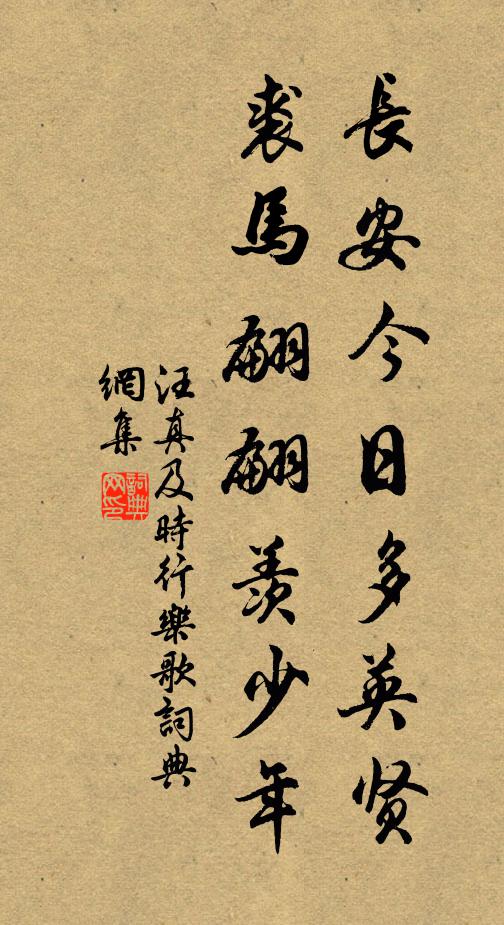 長安今日多英贤
裘馬翩翩羨少年
汪真及時行樂歌詞典
網集
詞典
网印